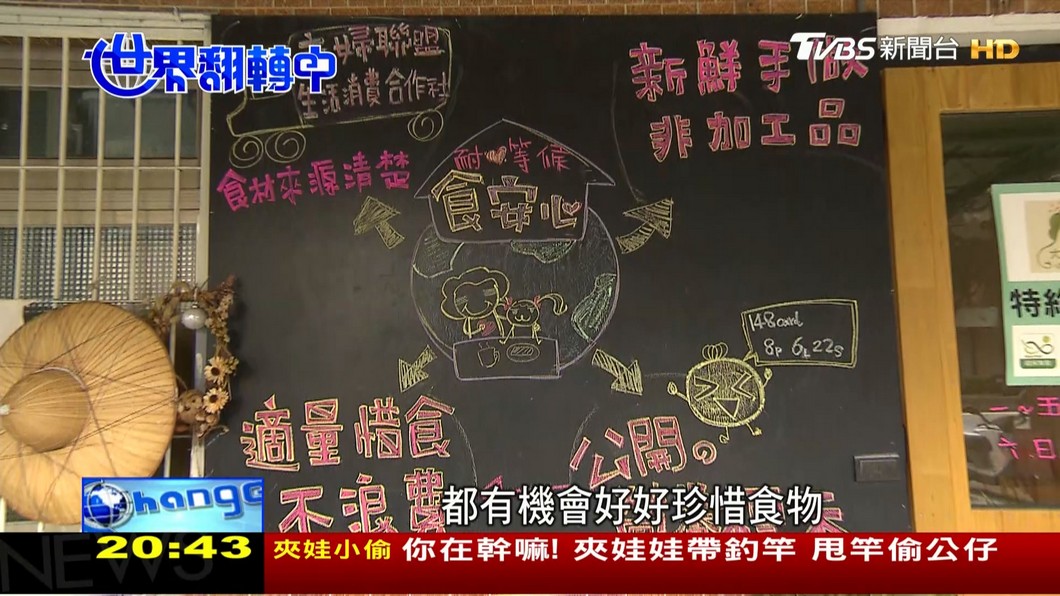 世界翻轉中
TVBS新聞台 HD
主婦聯盟
生活消費合作社
新鮮手做
非加工品
食材來源清楚
耐等候
食安心
8P 6L 22S
特約
適量惜食
不浪費
公開の
一~五
六.日
都有機會好好珍惜食物
Change
NEWS
20:43
夾娃小偷 你在幹嘛! 夾娃娃帶釣竿 甩竿偷公仔